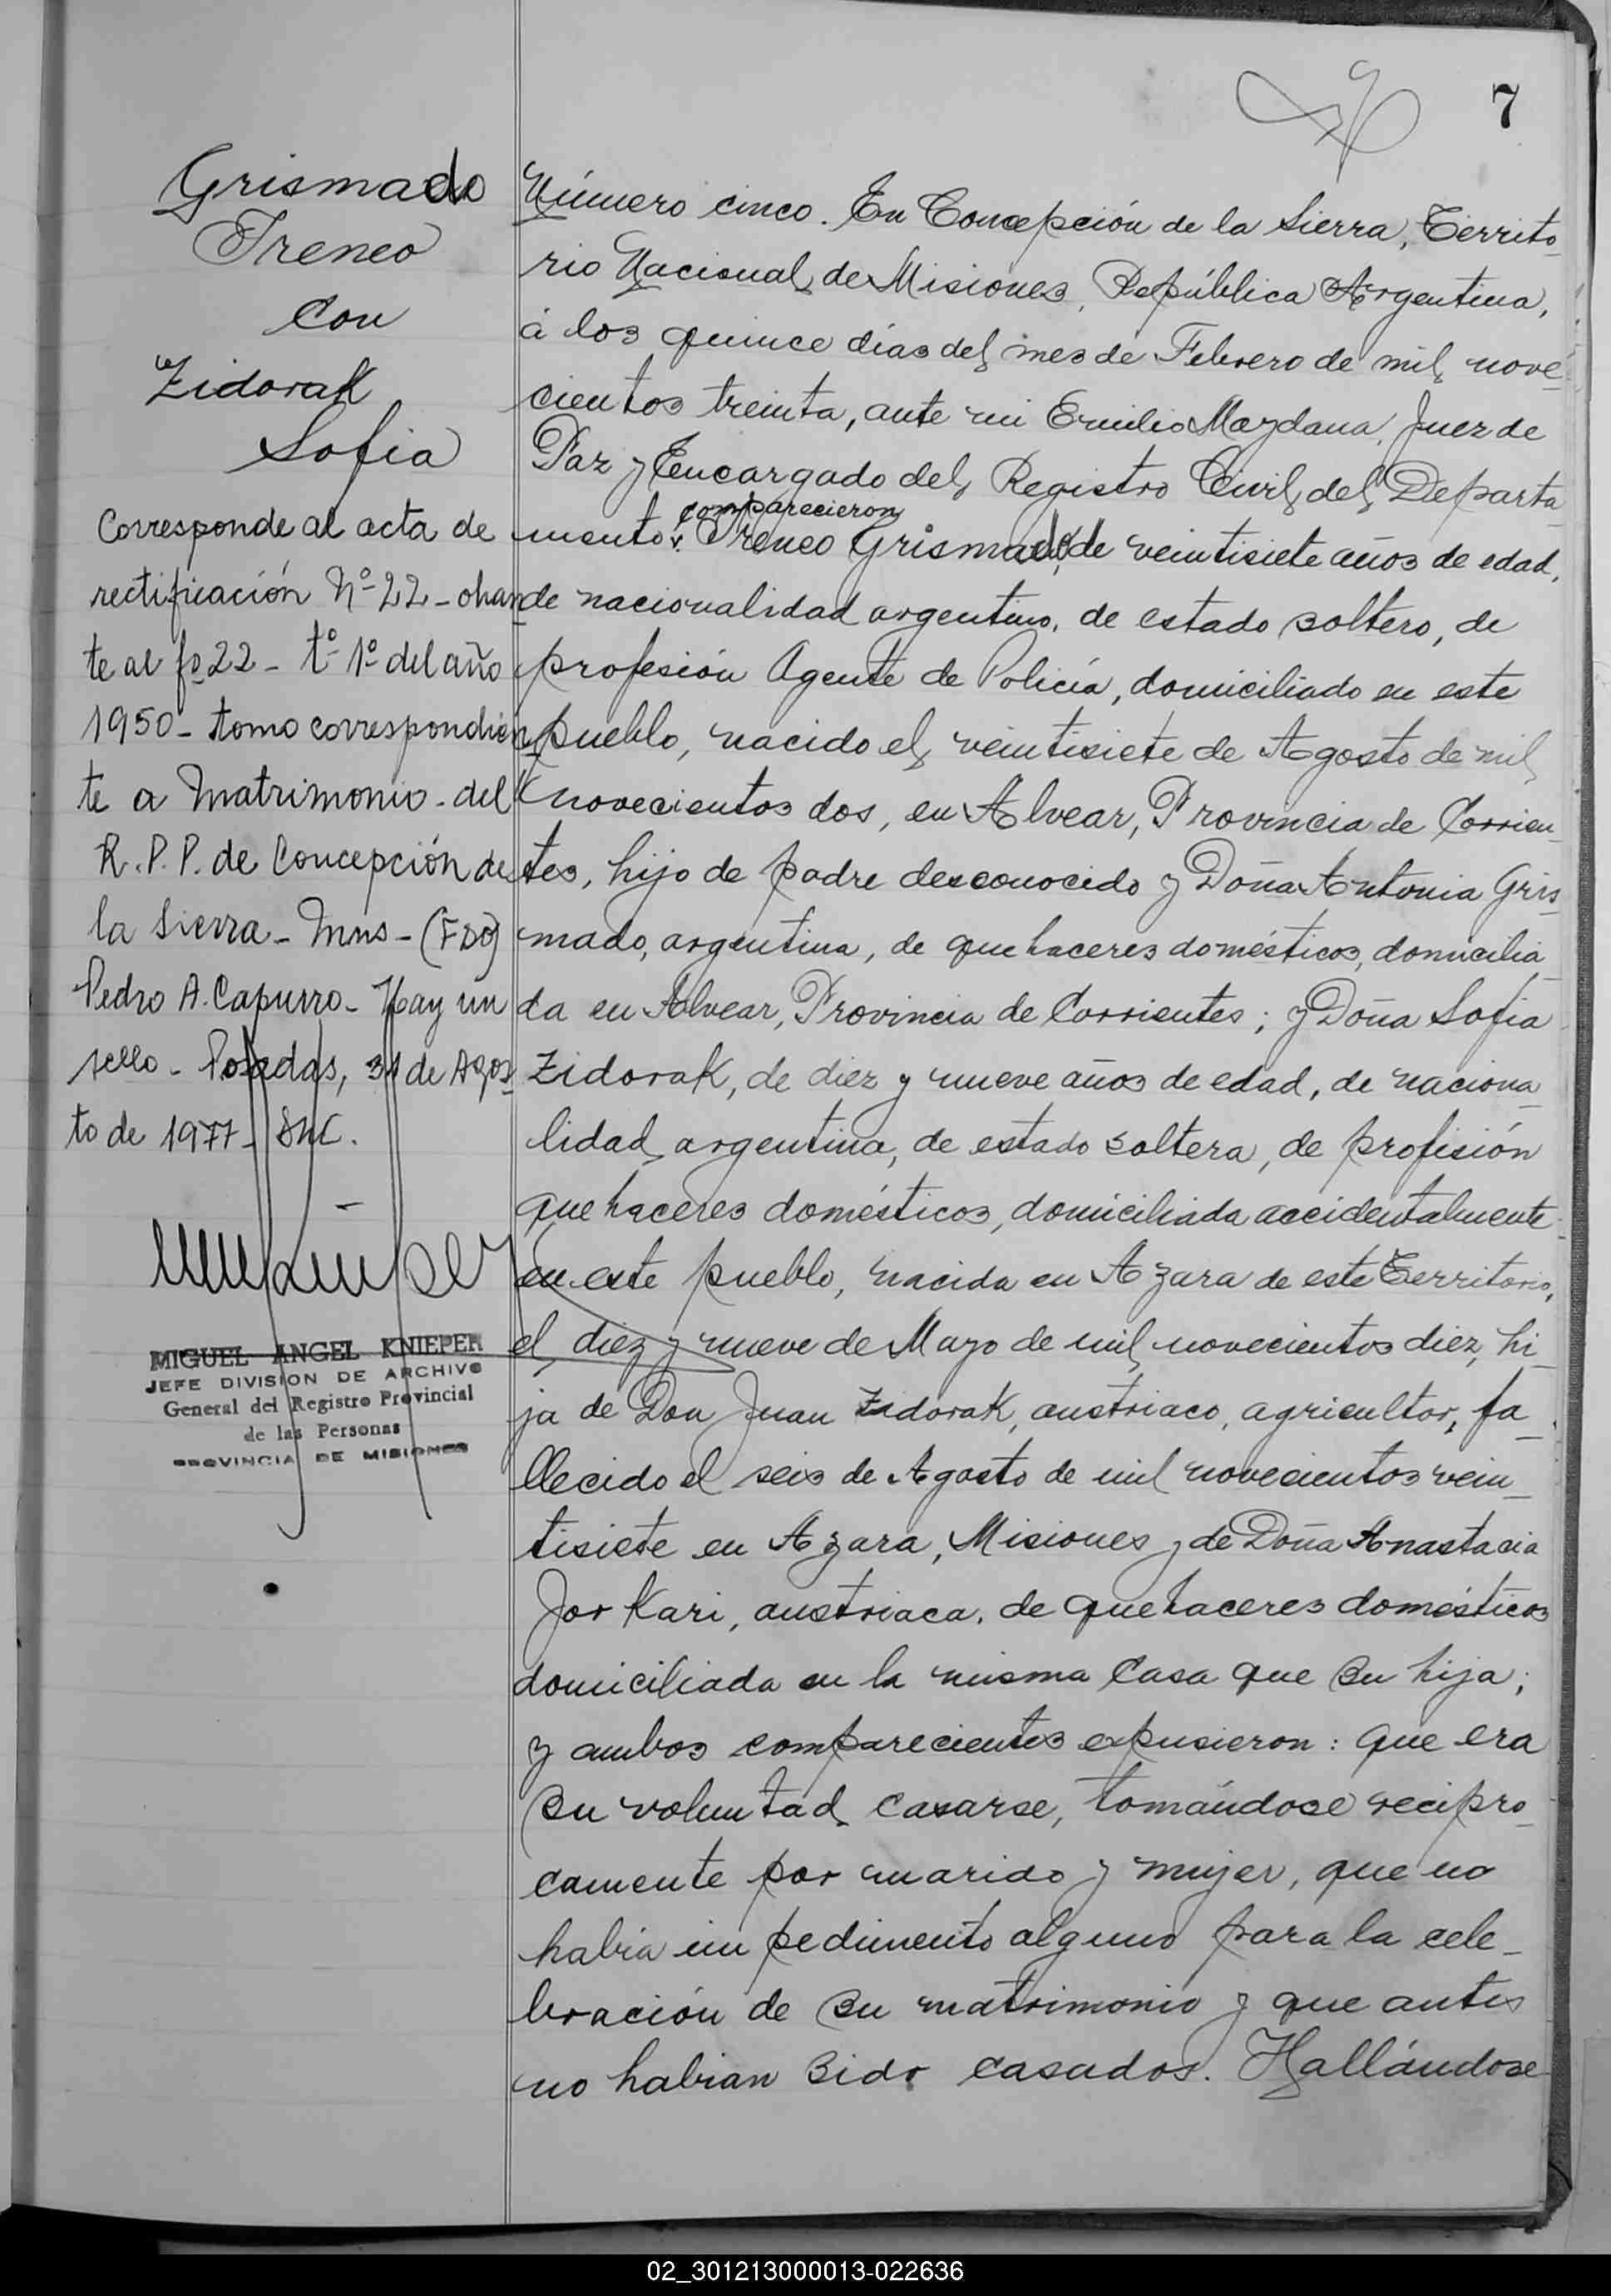 7
Grismado
Ireneo
Con
Zidorak
Sofia
Corresponde al acta de
rectificación Nº 22 - obran
te al fº 22 - tº 1º del año
1950 - tomo correspondien
te a Matrimonio - del
R.P.P. de Concepción de
la Sierra - Mns - (FDO)
Pedro A. Capurro - Hay un
sello - Posadas, 31 de Agos
to de 1977 -
MIGUEL ANGEL KNIEPER
JEFE DIVISION DE ARCHIVO
General del Registro Provincial
de las Personas
PROVINCIA DE MISIONES
Número cinco. En Concepción de la Sierra, Territo
rio Nacional de Misiones, República Argentina,
á los quince días del mes de Febrero de mil nove
cientos treinta, ante mi Emilio Maydana, Juez de
Paz y Encargado del Registro Civil del Departa
comparecieron
mento: Ireneo Grismado, de veintisiete años de edad,
de nacionalidad argentino, de estado soltero, de
profesión Agente de Policía, domiciliado en este
pueblo, nacido el veintisiete de Agosto de mil
novecientos dos, en Alvear, Provincia de Corrien
tes, hijo de padre desconocido y Doña Antonia Gris
mado, argentina, de quehaceres domésticos, domicilia
da en Alvear, Provincia de Corrientes; y Doña Sofia
Zidorak, de diez y nueve años de edad, de naciona
lidad argentina, de estado soltera, de profisión
quehaceres domésticos, domiciliada accidentalmente
en este pueblo, nacida en Azara de este Territorio,
el diez y nueve de Mayo de mil novecientos diez, hi
ja de Don Juan Zidorak, austriaco, agricultor, fa
llecido el seis de Agosto de mil novecientos vein
tisiete en Azara, Misiones y de Doña Anastacia
Jorkari, austriaca, de quehaceres domésticos
domiciliada en la misma Casa que su hija;
y ambos comparecientes expusieron: que era
su voluntad casarse, tomándose recipro
camente por marido y mujer, que no
habia impedimento alguno para la cele
bración de su matrimonio y que antes
no habian sido casados. Hallándose
02_301213000013-022636